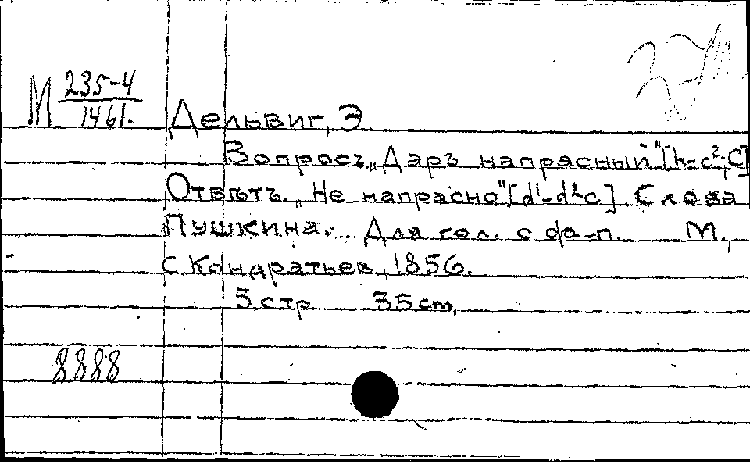 М 235-4
1461.
Дельвиг, Э.
Вопросъ. „Даръ напрасный" [h-c²; C]
Отвѣтъ. „Не напрасно" [d¹-d²; c]. Слова
Пушкина. Для гол. с ф-п. М.,
С. Кондратьев, 1856.
5 стр 35 cm.
8888